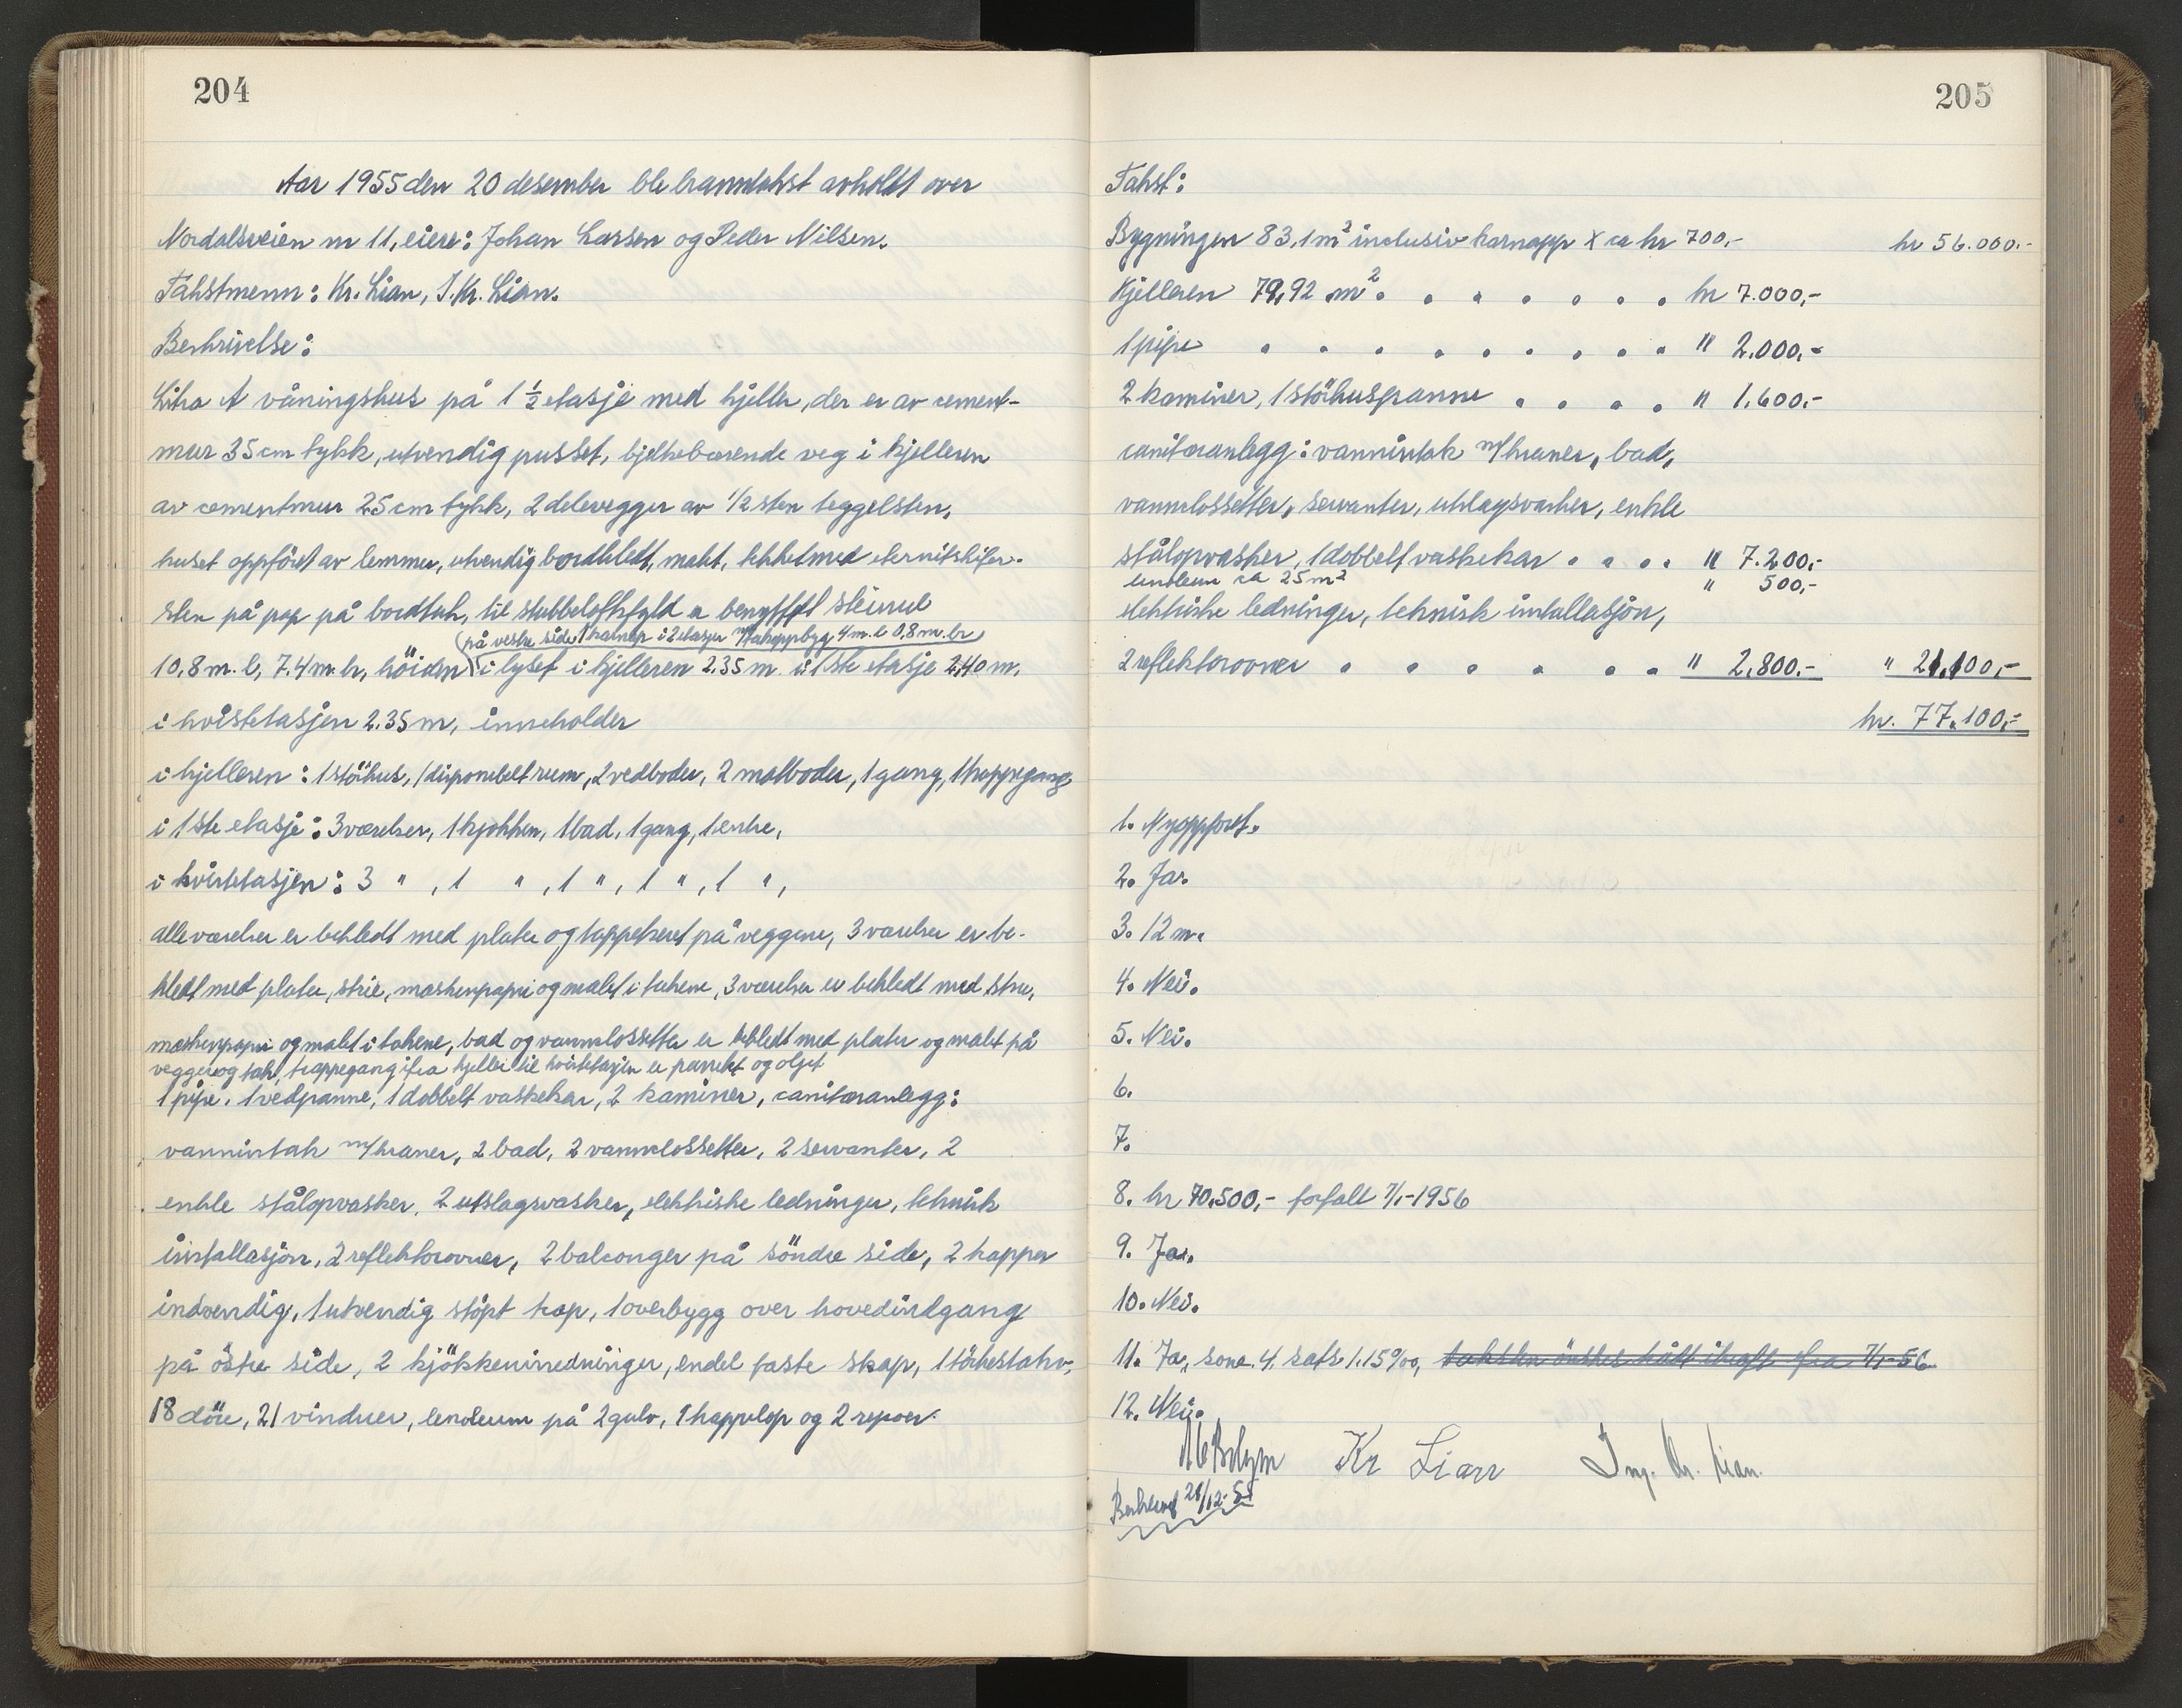 204
Aar 1955 den 20 desember ble branntakst avholdt over
Nordalsveien nr 11, eiere: Johan Larsen og Peder Nilsen.
Takstmenn: Kr. Lian, I. Kr. Lian.
Beskrivelse:
Litra A våningshus på 1 ½ etasje med kjeller, der er av cement-
mur 35 cm tykk, utvendig pusset, bjelkebærende veg i kjelleren
av cementmur 25 cm tykk, 2 delevegger av 1/2 sten teggelsten,
huset oppföret av lemmer, utvendig bordkledt, malt, tekket med eternitskifer-
sten på pap på bordtak, til stubbeloftsfyld er benyttet steinul
(på vestre side 1 karnap i 2 etasjer m/takoppbyg 4 m. l. 0,8 m. br)
10,8 m. l, 7.4 m. br, höiden i lyset i kjelleren 2.35 m. i 1ste etasje 2,40 m,
i kvistetasjen 2.35 m, inneholder
i kjelleren: 1 störhus, 1 disponibelt rum, 2 vedboder, 2 matboder, 1 gang, 1 trappegang,
i 1ste etasje: 3 værelser, 1 kjökken, 1 bad, 1 gang, 1 entre,
i kvistetasjen: 3 " , 1 " , 1 " , 1 " , 1 " ,
alle værelser er bekledt med plater og tappetseret på veggene, 3 værelser er be-
kledt med plater, strie, maskenpapir og malet i takene, 3 værelser er bekledt med strie,
maskenpapir og malet i takene, bad og vannclossetter er bekledt med plater og malt på
vegger og tak, trappegang ifra kjeller til kvistetasjen er panelet og oljet
1 pipe. 1 vedpanne, 1 dobbelt vaskekar, 2 kaminer, canitæranlegg:
vanninntak m/kraner, 2 bad, 2 vannclossetter, 2 servanter, 2
enkle stålopvasker, 2 utslagsvasker, elektriske ledninger, teknisk
installasjon, 2 reflektorovner, 2 balconger på söndre side, 2 trapper
indvendig, 1 utvendig stöpt trap, 1 overbygg over hovedindgang
på östre side, 2 kjökkeninnredninger, endel faste skap, 1 törkestativ,
18 döre, 21 vinduer, lenoleum på 2 gulv, 1 trappelöp og 2 repoer.
205
Takst:
Bygningen 83,1 m² inclusiv karnapp x ca kr 700,- kr 56.000.-
Kjelleren 79,92 m² . . . . . . . kr 7.000,-
1 pipe . . . . . . . . . " 2.000,-
2 kaminer, 1 störhuspanne . . . . " 1.600.-
canitæranlegg: vanninntak m/kraner, bad,
vannclossetter, servanter, utslagsvasker, enkle
stålopvasker, 1 dobbelt vaskekar . . . . " 7.200,-
linoleum ca 25 m² " 500,-
elektriske ledninger, teknisk installasjon,
2 reflektorovner . . . . . . " 2.800.- " 21.100,-
kr. 77.100,-
1. Nyoppfört.
2. Ja.
3. 12 m.
4. Nei.
5. Nei.
6.
7.
8. kr 70.500,- forfalt 7/1-1956
9. Ja.
10. Nei.
11. Ja, sone 4. sats 1.15 ‰, taksten önskes trått ikraft fra 7/1-56
12. Nei.
Kr Lian Ing. Kr. Lian.
Beskrevet 28/12-55